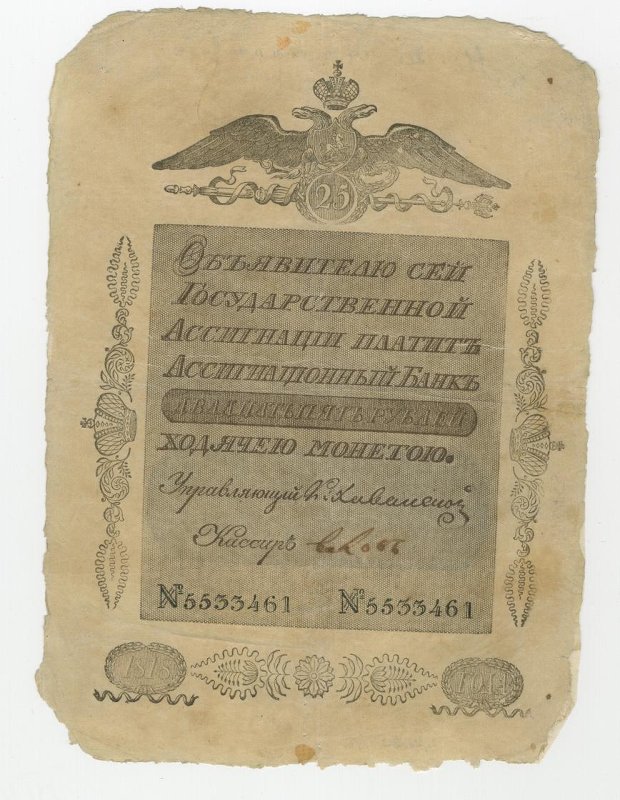 25
Объявителю сей
Государственной
Ассигнаціи платитъ
Ассигнаціонный Банкъ
двадцать пять рублей
ходячею монетою.
Управляющій
Кассиръ
№ 5533461 № 5533461
1818 года